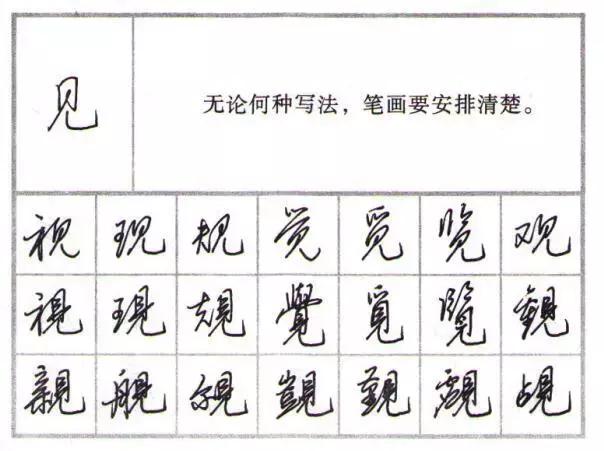 见 无论何种写法，笔画要安排清楚。
视 现 规 觉 觅 览 观
視 現 規 覺 覓 覽 觀
親 覬 覲 覘